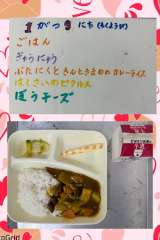 1 がつ 9 にち (もくようび)
ごはん
ぎゅうにゅう
ぶたにくと きんときまめの カレーライス
はくさいのピクルス
ぼうチーズ